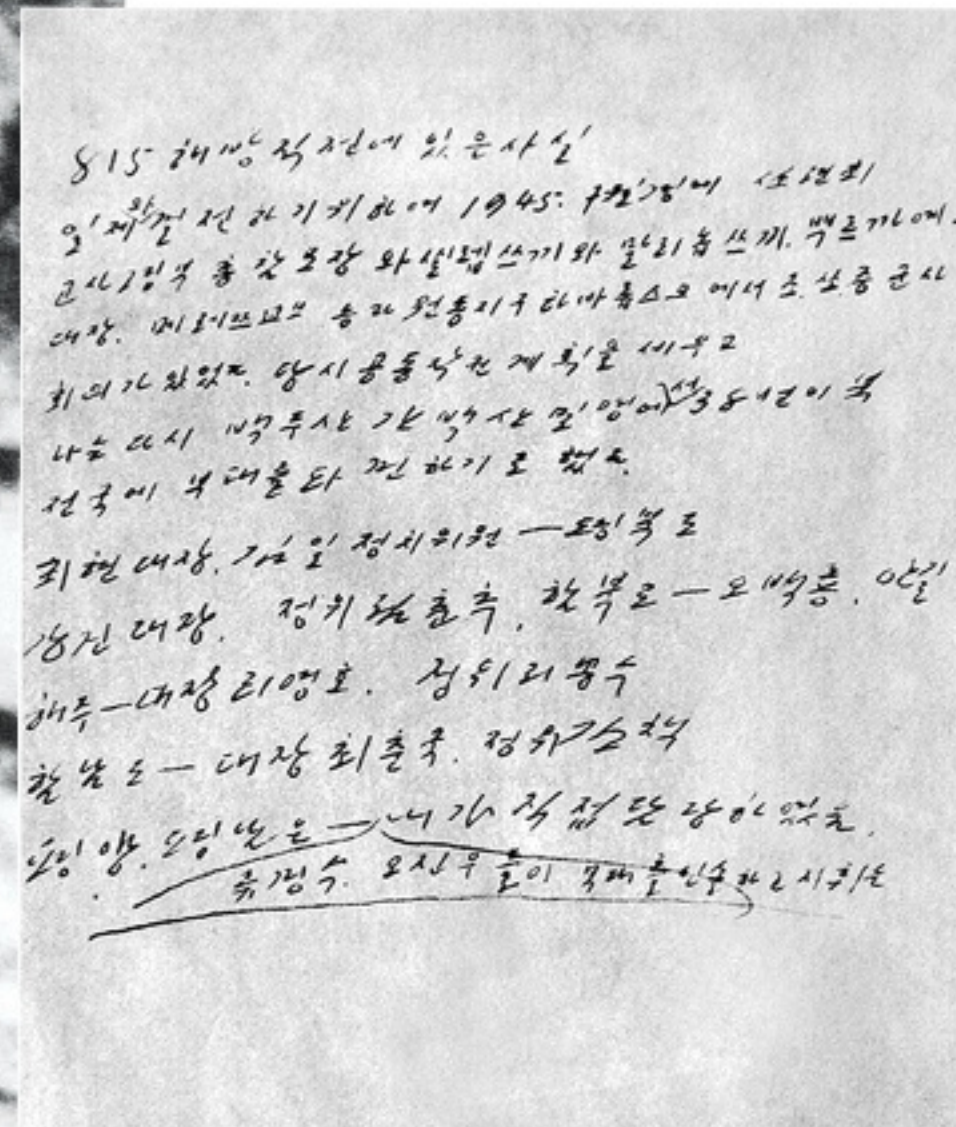 815 해방직전에 있은 사실
일제와 결전하기 위하여 1945. 7월경에 쏘련최
고사령부 총참모장 와실렙쓰끼와 말리놉쓰끼. 뿌르까예
대장. 메레쓰꼬브 등과 원동지구 하바롭스크에서 조.쏘.중 군사
회의가 있었다. 당시 공동작전 계획을 세우고
나는 다시 백두산 간백산 밀영에서 38선이북
전국에 부대를 타진하기로 했다.
최현대장. 김일 정치위원 — 평북도
강건대장. 정위 림춘추. 함북도 — 오백룡. 안길
해주 — 대장 리영호. 정위 리봉수
함남도 — 대장 최춘국. 정위 김책
평양. 평남은 — 내가 직접 담당하였다.
류경수. 오진우들이 부대를 인솔하고 시취는